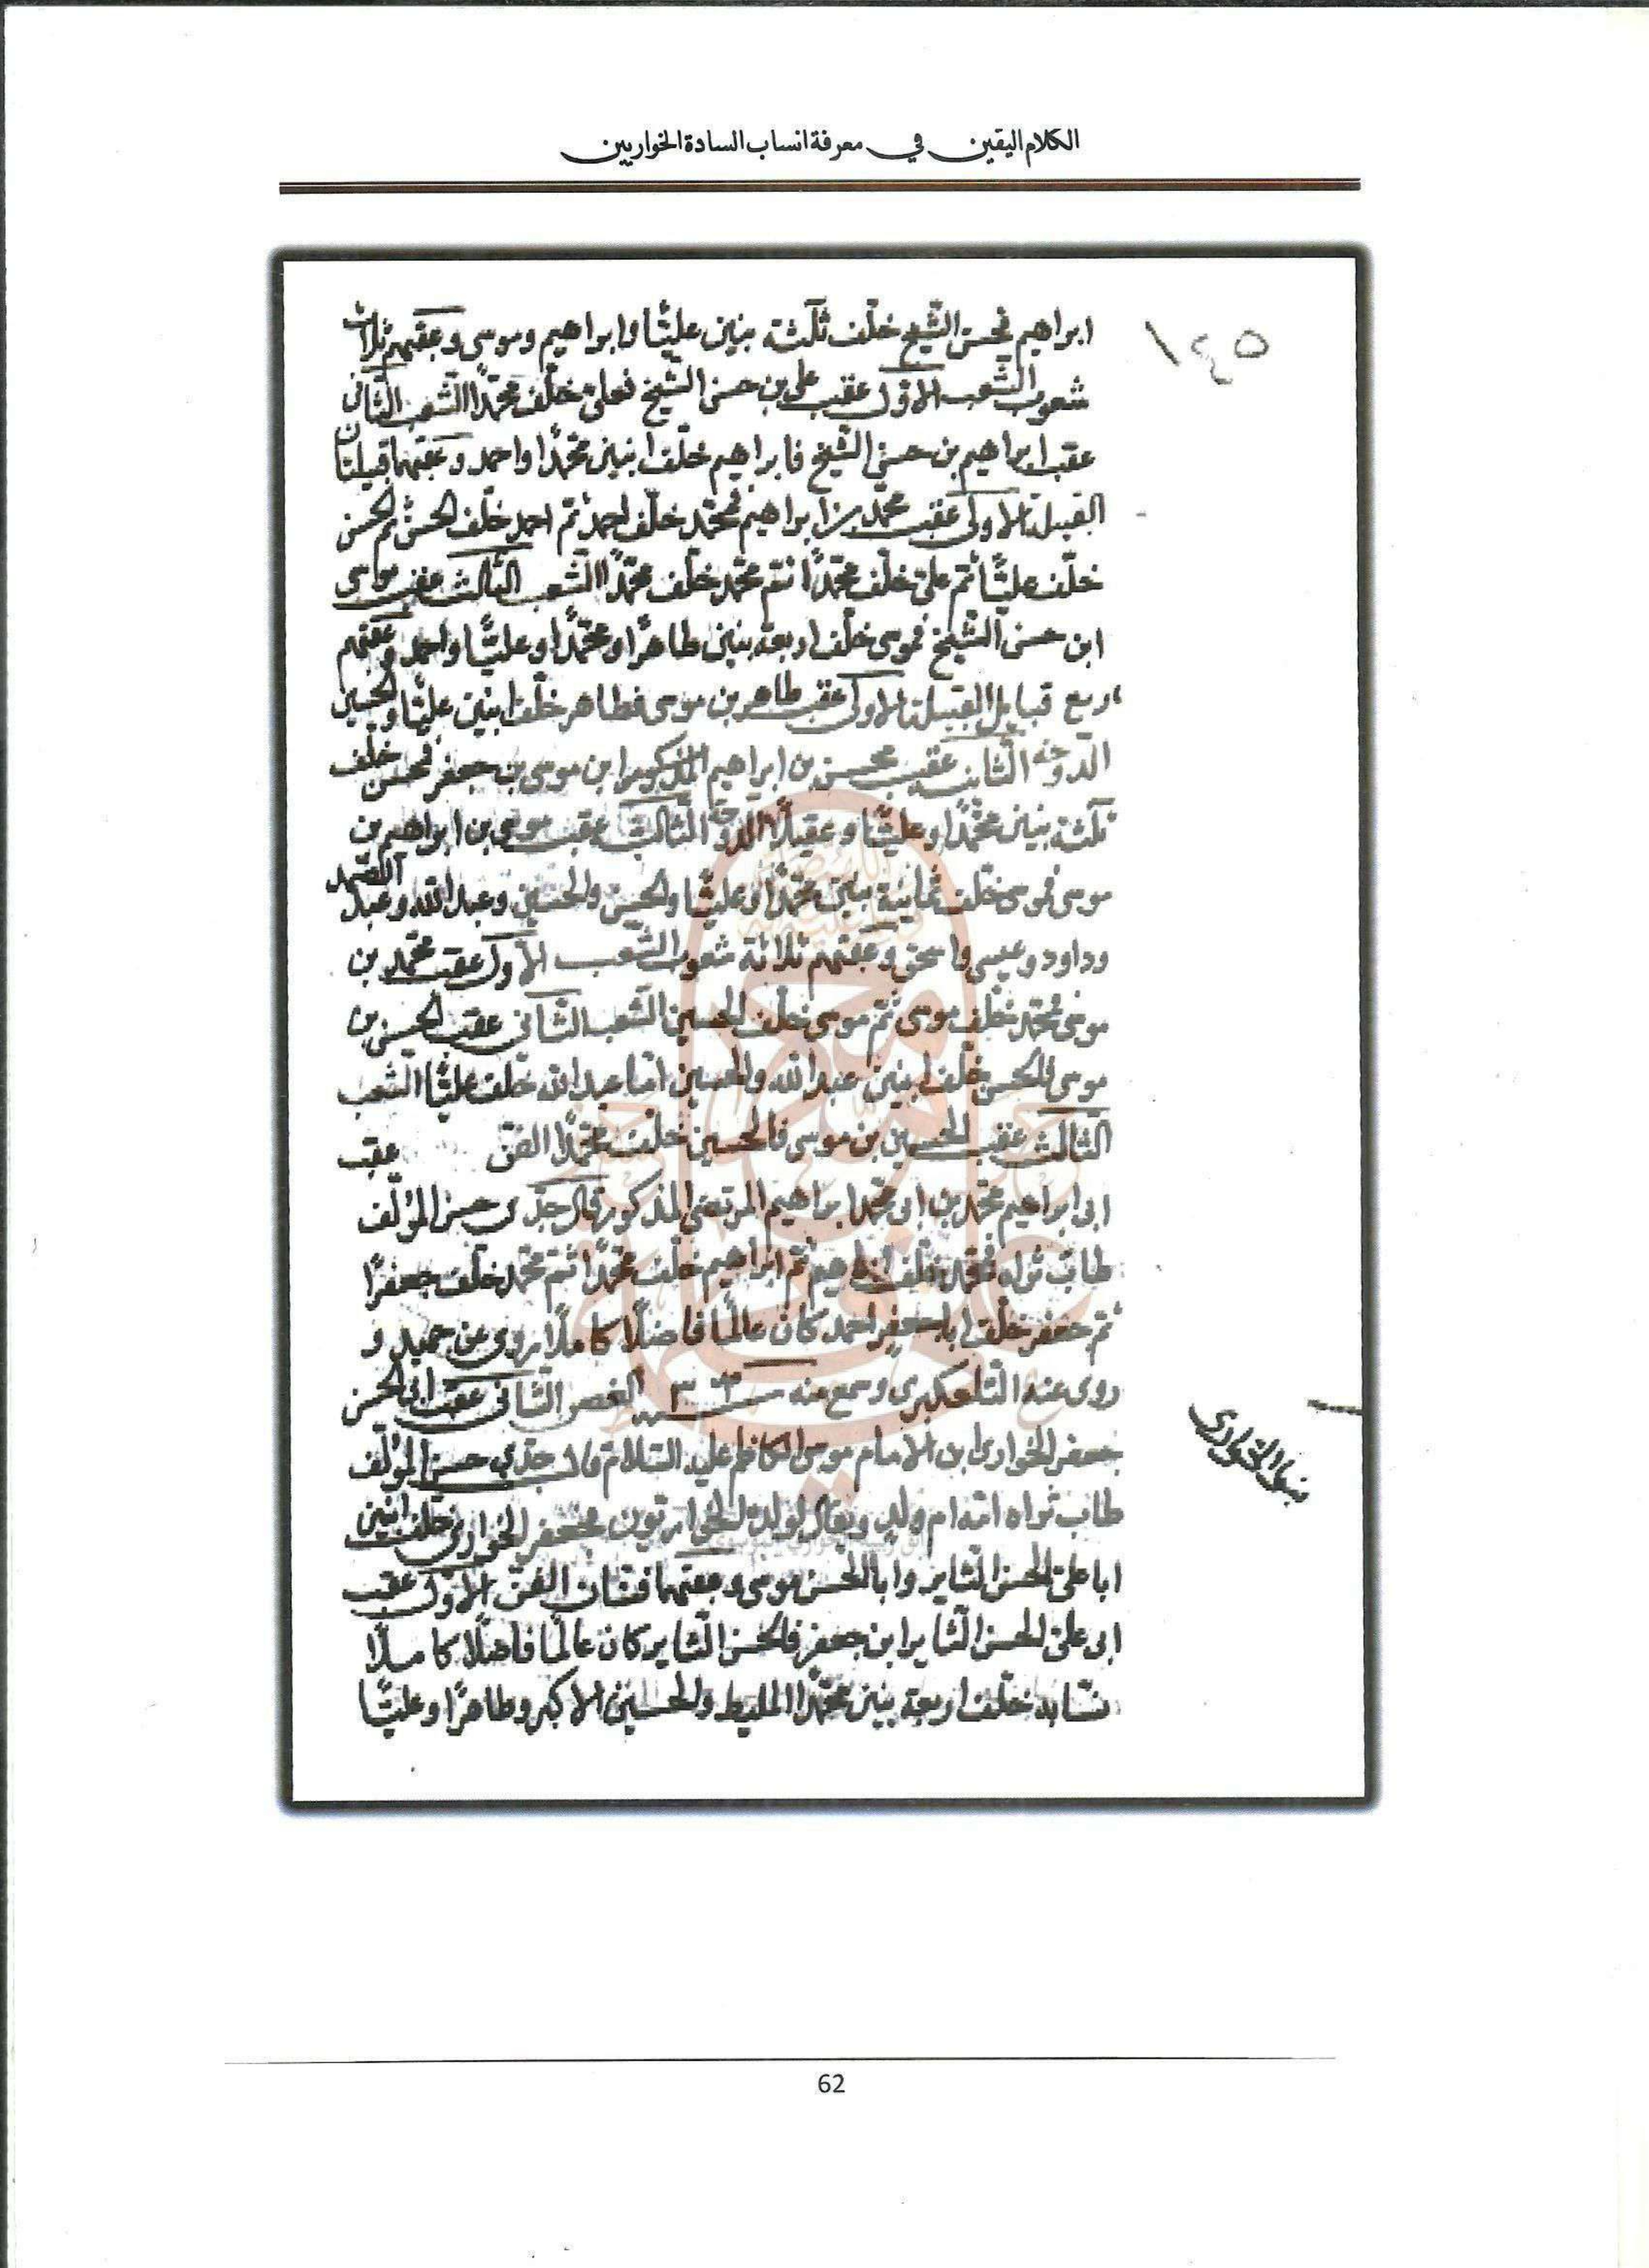 الكلام اليقين في معرفة انساب السادة الخواريين
١٤٥
ابراهيم فحسن الشيخ خلّف ثلثة بنين عليًّا وابراهيم وموسى وعقبهم ثلاث
شعوب الشعب الاوّل عقب علي بن حسن الشيخ فعلى خلّف محمّدًا الشعب الثانى
عقب ابراهيم بن حسن الشيخ فابراهيم خلّف ابنين محمّدًا واحمد وعقبهما قبيلتان
القبيلة الاولى عقب محمّد بن ابراهيم فمحمّد خلّف احمد ثم احمد خلّف الحسن ثم الحسن
خلّف عليًّا ثم على خلّف محمّدًا ثم محمّد خلّف محمّدًا الشعب الثالث عقب موسى
ابن حسن الشيخ فموسى خلّف اربعة بنين طاهرًا ومحمّدًا وعليًّا واحمد وعقبهم
اربع قبايل القبيلة الاولى عقب طاهر بن موسى فطاهر خلّف ابنين عليًّا والحسين
الدوحة الثانية عقب محسن بن ابراهيم المذكور ابن موسى بن جعفر فمحسن خلّف
ثلثة بنين محمّدًا وعليًّا وعقيلًا الدوحة الثالثة عقب موسى بن ابراهيم بن
موسى فموسى خلّف ثمانية بنين محمّدًا وعليًّا والحسن والحسين وعبد الله وعبد الصمد
وداود وعيسى واسحق وعقبهم ثلاثة شعوب الشعب الاول عقب محمّد بن
موسى فمحمّد خلّف موسى ثم موسى خلّف الحسين الشعب الثانى عقب الحسن بن
موسى فالحسن خلّف ابنين عبد الله والحسين امّا عبد الله خلّف عليًّا الشعب
الثالث عقب الحسين بن موسى فالحسين خلّف محمّدًا الفن عقب
ابى ابراهيم محمّد بن ابى محمّد ابراهيم المرتضى المذكور قال جدّى حسن المؤلّف
طاب ثراه فمحمّد خلّف ابراهيم ثم ابراهيم خلّف محمّدًا ثم محمّد خلّف جعفرًا
ثم جعفر خلّف ابا جعفر احمد كان عالمًا فاضلًا كاملًا يروى عن حميد و
روى عنه التلعكبرى وسمع منه سنة الغصن الثانى عقب ابى الحسن
جعفر الخوارى ابن الامام موسى الكاظم عليه السلام قال جدّى حسن المؤلّف
طاب ثراه امّه ام ولد ويقال لولده الخواريّون فجعفر الخوارى خلّف ابنين
ابا على الحسن الثاير وابا الحسن موسى وعقبهما فنان الفن الاوّل عقب
ابى على الحسن الثاير ابن جعفر فالحسن الثاير كان عالمًا فاضلًا كاملًا
نسّابه خلّف اربعة بنين محمّدًا المليط والحسين الاكبر وطاهرًا وعليًّا
الخوارى
62